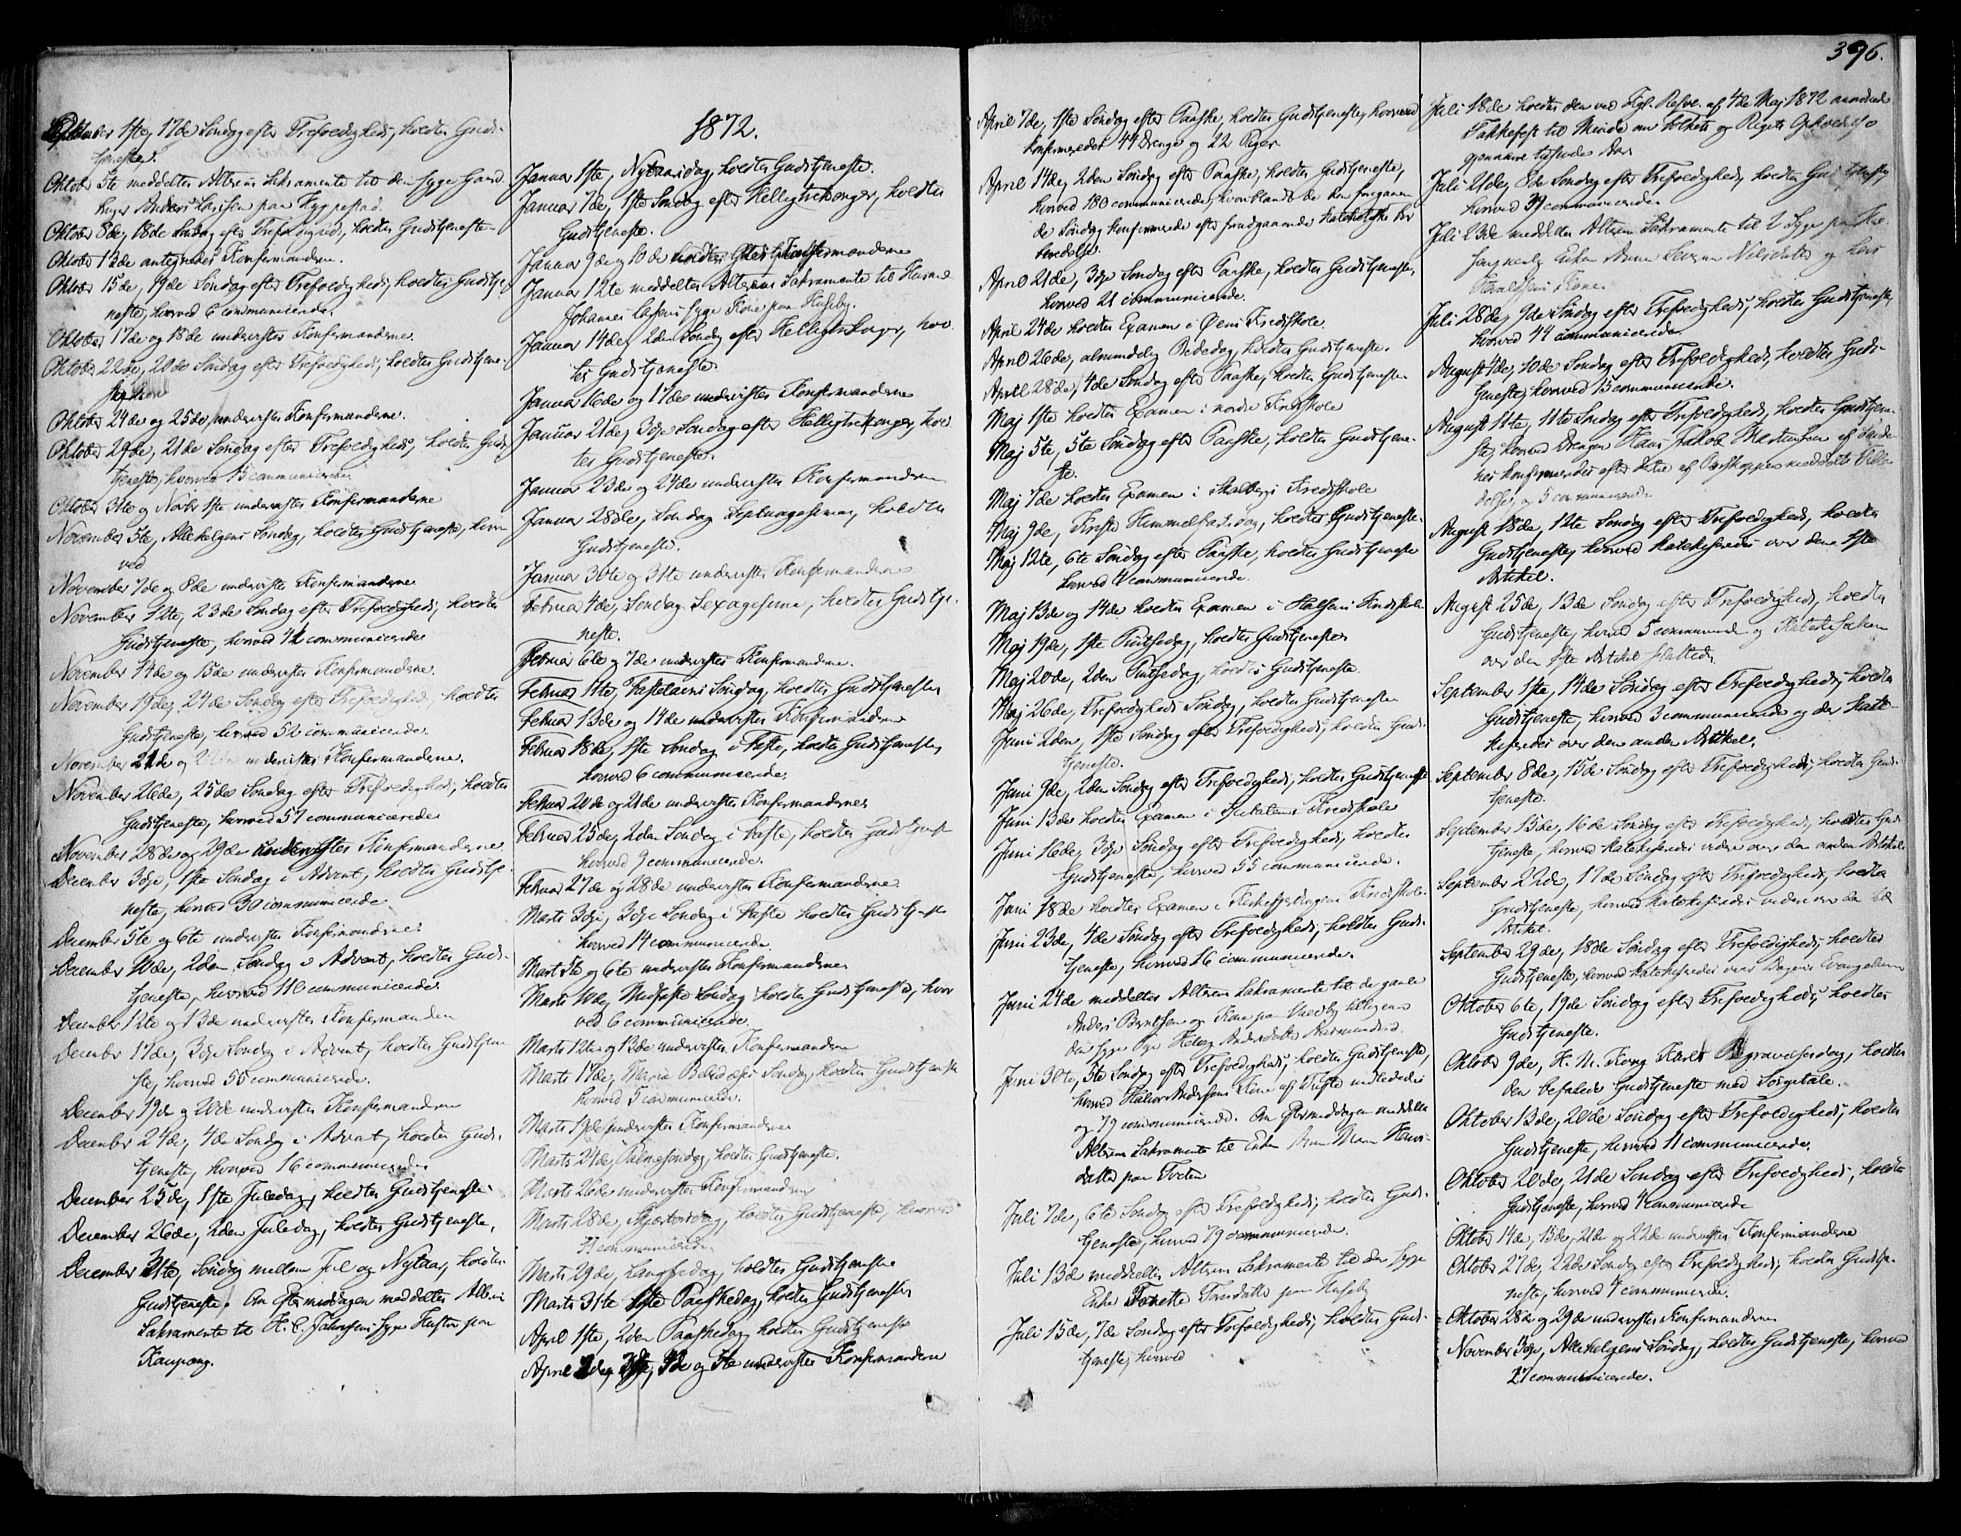 396.
Oktober 1ste, 17de Søndag efter Trefoldighed, holdtes Guds-
tjeneste.
Oktober 5te meddeltes Alterens Sakramente til den syge Gaard
bruger Anders Larsen paa
Oktober 8de, 18de Søndag efter Trefoldighed, holdtes Gudstjeneste.
Oktober 13de antegnedes Konfirmanderne.
Oktober 15de, 19de Søndag efter Trefoldighed, holdtes Gudstje-
neste, hvorved 6 communicerede.
Oktober 17de og 18de undervistes Konfirmanderne.
Oktober 22de, 20de Søndag efter Trefoldighed, holdtes Gudstjene-
Oktober 24de og 25de undervistes Konfirmanderne.
Oktober 29de, 21de Søndag efter Trefoldighed, holdtes Guds-
tjeneste, hvorved 15 communicerede
Oktober 31te og Novbr 1ste undervistes Konfirmanderne
November 5te, Allehelgens Søndag, holdtes Gudstjeneste, hvor-
ved
November 7de og 8de undervistes Konfirmanderne
November 12te, 23de Søndag efter Trefoldighed, holdtes
Gudstjeneste, hvorved communicerede
November 14de og 15de undervistes Konfirmanderne.
November 19de, 24de Søndag efter Trefoldighed, holdtes
Gudstjeneste, hvorved 52 communicerede.
November 21de og undervistes Konfirmanderne.
November 26de, 25de Søndag efter Trefoldighed, holdtes
Gudstjeneste, hvorved 57 communicerede
November 28de og 29de undervistes Konfirmanderne
December 3dje, 1ste Søndag i Advent, holdtes Gudstje-
neste, hvorved 30 communicerede
December 5te og 6te undervistes Konfirmanderne
December 10de, 2den Søndag i Advent, holdtes Guds-
tjeneste, hvorved 116 communicerede
December 12te og 13de undervistes Konfirmanderne
December 17de, 3dje Søndag i Advent, holdtes Gudstjene-
ste, hvorved 50 communicerede.
December 19de og 20de undervistes Konfirmanderne
December 24de, 4de Søndag i Advent, holdtes Guds-
tjeneste, hvorved 16 communicerede
December 25de, 1ste Juledag, holdtes Gudstjeneste.
December 26de, 2den Juledag, holdtes Gudstjeneste,
December 31te, Søndag mellem Jul og Nytaar, holdtes
Gudstjeneste. Om Eftermiddagen meddeltes Alterens
Sakramente til H. C. syge Hustru paa
Kaupang.
1872.
Januar 1ste, Nytaarsdag, holdtes Gudstjeneste.
Januar 7de, 1ste Søndag efter Helligtrekonger, holdtes
Gudstjeneste.
Januar 9de og 10de Konfirmanderne
Januar 12te meddeltes Alterens Sakramente til Huusm.
Johannes syge Kone paa Huseby.
Januar 14de, 2den Søndag efter Helligtrekonger, hold-
tes Gudstjeneste
Januar 16de og 17de undervistes Konfirmanderne
Januar 21de, 3dje Søndag efter Helligtrekonger, hold-
tes Gudstjeneste.
Januar 23de og 24de undervistes Konfirmanderne
Januar 28de, Søndag Septuagesima, holdtes
Gudstjeneste.
Januar 30te og 31te undervistes Konfirmanderne
Februar 4de, Søndag Sexagesima, holdtes Gudstje-
neste.
Februar 6te og 7de undervistes Konfirmanderne.
Februar 11te, Fastelavns Søndag, holdtes Gudstjeneste
Februar 13de og 14de undervistes Konfirmanderne
Februar 18de, 1ste Søndag i Faste, holdtes Gudstjeneste,
hvorved 6 communicerede.
Februar 20de og 21de undervistes Konfirmanderne
Februar 25de, 2den Søndag i Faste, holdtes Gudstjeneste
hvorved 9 communicerede.
Februar 27de og 28de undervistes Konfirmanderne
Marts 3dje, 3dje Søndag i Faste holdtes Gudstjeneste
hvorved 14 communicerede.
Marts 5te og 6te undervistes Konfirmanderne
Marts 10de, Midfaste Søndag holdtes Gudstjeneste, hvor-
ved 6 communicerede.
Marts 12te og 13de undervistes Konfirmanderne
Marts 17de, Mariæ Bebudelses Søndag, holdtes Gudstjeneste
hvorved 5 communicerede.
Marts 19de undervistes Konfirmanderne
Marts 24de, Palmesøndag, holdtes Gudstjeneste.
Marts 26de undervistes Konfirmanderne
Marts 28de, Skjærtorsdag, holdtes Gudstjeneste, hvorved
communicerede
Marts 29de, Langfredag, holdtes Gudstjeneste
Marts 31te 1ste Paaskedag, holdtes Gudstjeneste
April 1ste, 2den Paaskedag holdtes Gudstjeneste
April 2den, 3dje, 4de og 5te undervistes Konfirmanderne
April 7de, 1ste Søndag efter Paaske, holdtes Gudstjeneste, hvorved
konfirmeredes 44 Drenge og 22 Piger
April 14de, 2den Søndag efter Paaske, holdtes Gudstjeneste,
hvorved 180 communicerede, hvoriblandt de den foregaaen-
de Søndag konfirmerede efter foregaaende
beredelse.
April 21de, 3dje Søndag efter Paaske, holdtes Gudstjeneste,
hvorved 21 communicerede.
April 24de holdtes Examen i Øens Kredsskole.
April 26de, almindelig Bededag, holdtes Gudstjeneste.
April 28de, 4de Søndag efter Paaske, holdtes Gudstjeneste
Maj 1ste holdtes Examen i nordre Kredsskole
Maj 5te, 5te Søndag efter Paaske, holdtes Gudstjene-
ste.
Maj 7de holdtes Examen i Kredsskole
Maj 9de, Kristi Himmelfartsdag, holdtes Gudstjeneste.
Maj 12te, 6te Søndag efter Paaske, holdtes Gudstjeneste
hvorved communicerede.
Maj 13de og 14de holdtes Examen i Kredsskole
Maj 19de, 1ste Pintsedag, holdtes Gudstjeneste
Maj 20de, 2den Pintsedag holdtes Gudstjeneste
Maj 26de, Trefoldigheds Søndag, holdtes Gudstjeneste
Juni 2den, 1ste Søndag efter Trefoldighed, holdtes Guds-
tjeneste.
Juni 9de, 2den Søndag efter Trefoldighed, holdtes Gudstjeneste
Juni 13de holdtes Examen i Kredsskole
Juni 16de, 3dje Søndag efter Trefoldighed, holdtes
Gudstjeneste, hvorved 55 communicerede.
Juni 18de holdtes Examen i Kredsskole
Juni 23de, 4de Søndag efter Trefoldighed, holdtes Guds-
tjeneste, hvorved 16 communicerede.
Juni 24de meddeltes Alterens Sakramente til de gamle
Anders Berntsen og Kone paa
den syge Pige Helvig Andersdatter
Juni 30te, 5te Søndag efter Trefoldighed, holdtes Gudstjeneste,
hvorved Halvor Andersens Kone af indlededes
og 79 communicerede. Om Eftermiddagen meddeltes
Alterens Sakramente til Enken
datter paa Torten
Juli 7de, 6te Søndag efter Trefoldighed, holdtes Guds-
tjeneste, hvorved 79 communicerede.
Juli 13de meddeltes Alterens Sakramente til den syge
Enke paa Huseby
Juli 15de, 7de Søndag efter Trefoldighed, holdtes Guds-
tjeneste, hvorved
Juli 18de holdtes den ved Kgl. Resol. af 4de Maj 1872 anordnede
Takkefest til Minde om Folkets og Rigets Opholdelse
gjennem tusinde Aar
Juli 21de, 8de Søndag efter Trefoldighed, holdtes Gudstjeneste
hvorved 39 communicerede
Juli 23de meddeltes Alterens Sakramente til 2 Syge paa
Enken Anne Nilsdatter og Lars
Kone.
Juli 28de, 9de Søndag efter Trefoldighed, holdtes Gudstjeneste,
hvorved 44 communicerede
August 4de, 10de Søndag efter Trefoldighed, holdtes Guds-
tjeneste, hvorved 15 communicerede.
August 11te, 11te Søndag efter Trefoldighed, holdtes Gudstjene-
ste, hvorved Drengen Hans Jakob
konfirmeredes efter af Biskoppen meddelt Tilla-
delse, og 5 communicerede
August 18de, 12te Søndag efter Trefoldighed, holdtes
Gudstjeneste, hvorved katekiseredes over den 1ste
Artikel.
August 25de, 13de Søndag efter Trefoldighed, holdtes
Gudstjeneste, hvorved 5 communic. og Katekisation
over den 1ste Artikel holdtes.
September 1ste, 14de Søndag efter Trefoldighed, holdtes
Gudstjeneste, hvorved 3 communicerede og der kate-
kiseredes over den anden Artikel.
September 8de, 15de Søndag efter Trefoldighed, holdtes Guds-
tjeneste.
September 15de, 16de Søndag efter Trefoldighed, holdtes Guds-
tjeneste, hvorved katekiseredes videre over den anden Artikel
September 22de, 17de Søndag efter Trefoldighed, holdtes
Gudstjeneste, hvorved katekiseredes videre over den
Artikel.
September 29de, 18de Søndag efter Trefoldighed, holdtes
Gudstjeneste, hvorved katekiseredes over Dagens Evangelium
Oktober 6te, 19de Søndag efter Trefoldighed, holdtes
Gudstjeneste.
Oktober 9de, H. M. Kong Karls Begravelsesdag, holdtes
den befalede Gudstjeneste med Sørgetale.
Oktober 13de, 20de Søndag efter Trefoldighed, holdtes
Gudstjeneste, hvorved 11 communicerede.
Oktober 20de, 21de Søndag efter Trefoldighed, holdtes
Gudstjeneste, hvorved 4 communicerede
Oktober 14de, 15de, 21de og 22de undervistes Konfirmanderne
Oktober 27de, 22de Søndag efter Trefoldighed, holdtes Gudstje-
neste, hvorved 7 communicerede.
Oktober 28de og 29de undervistes Konfirmanderne
November 3dje, Allehelgens Søndag, holdtes Gudstjeneste, hvorved
27 communicerede.